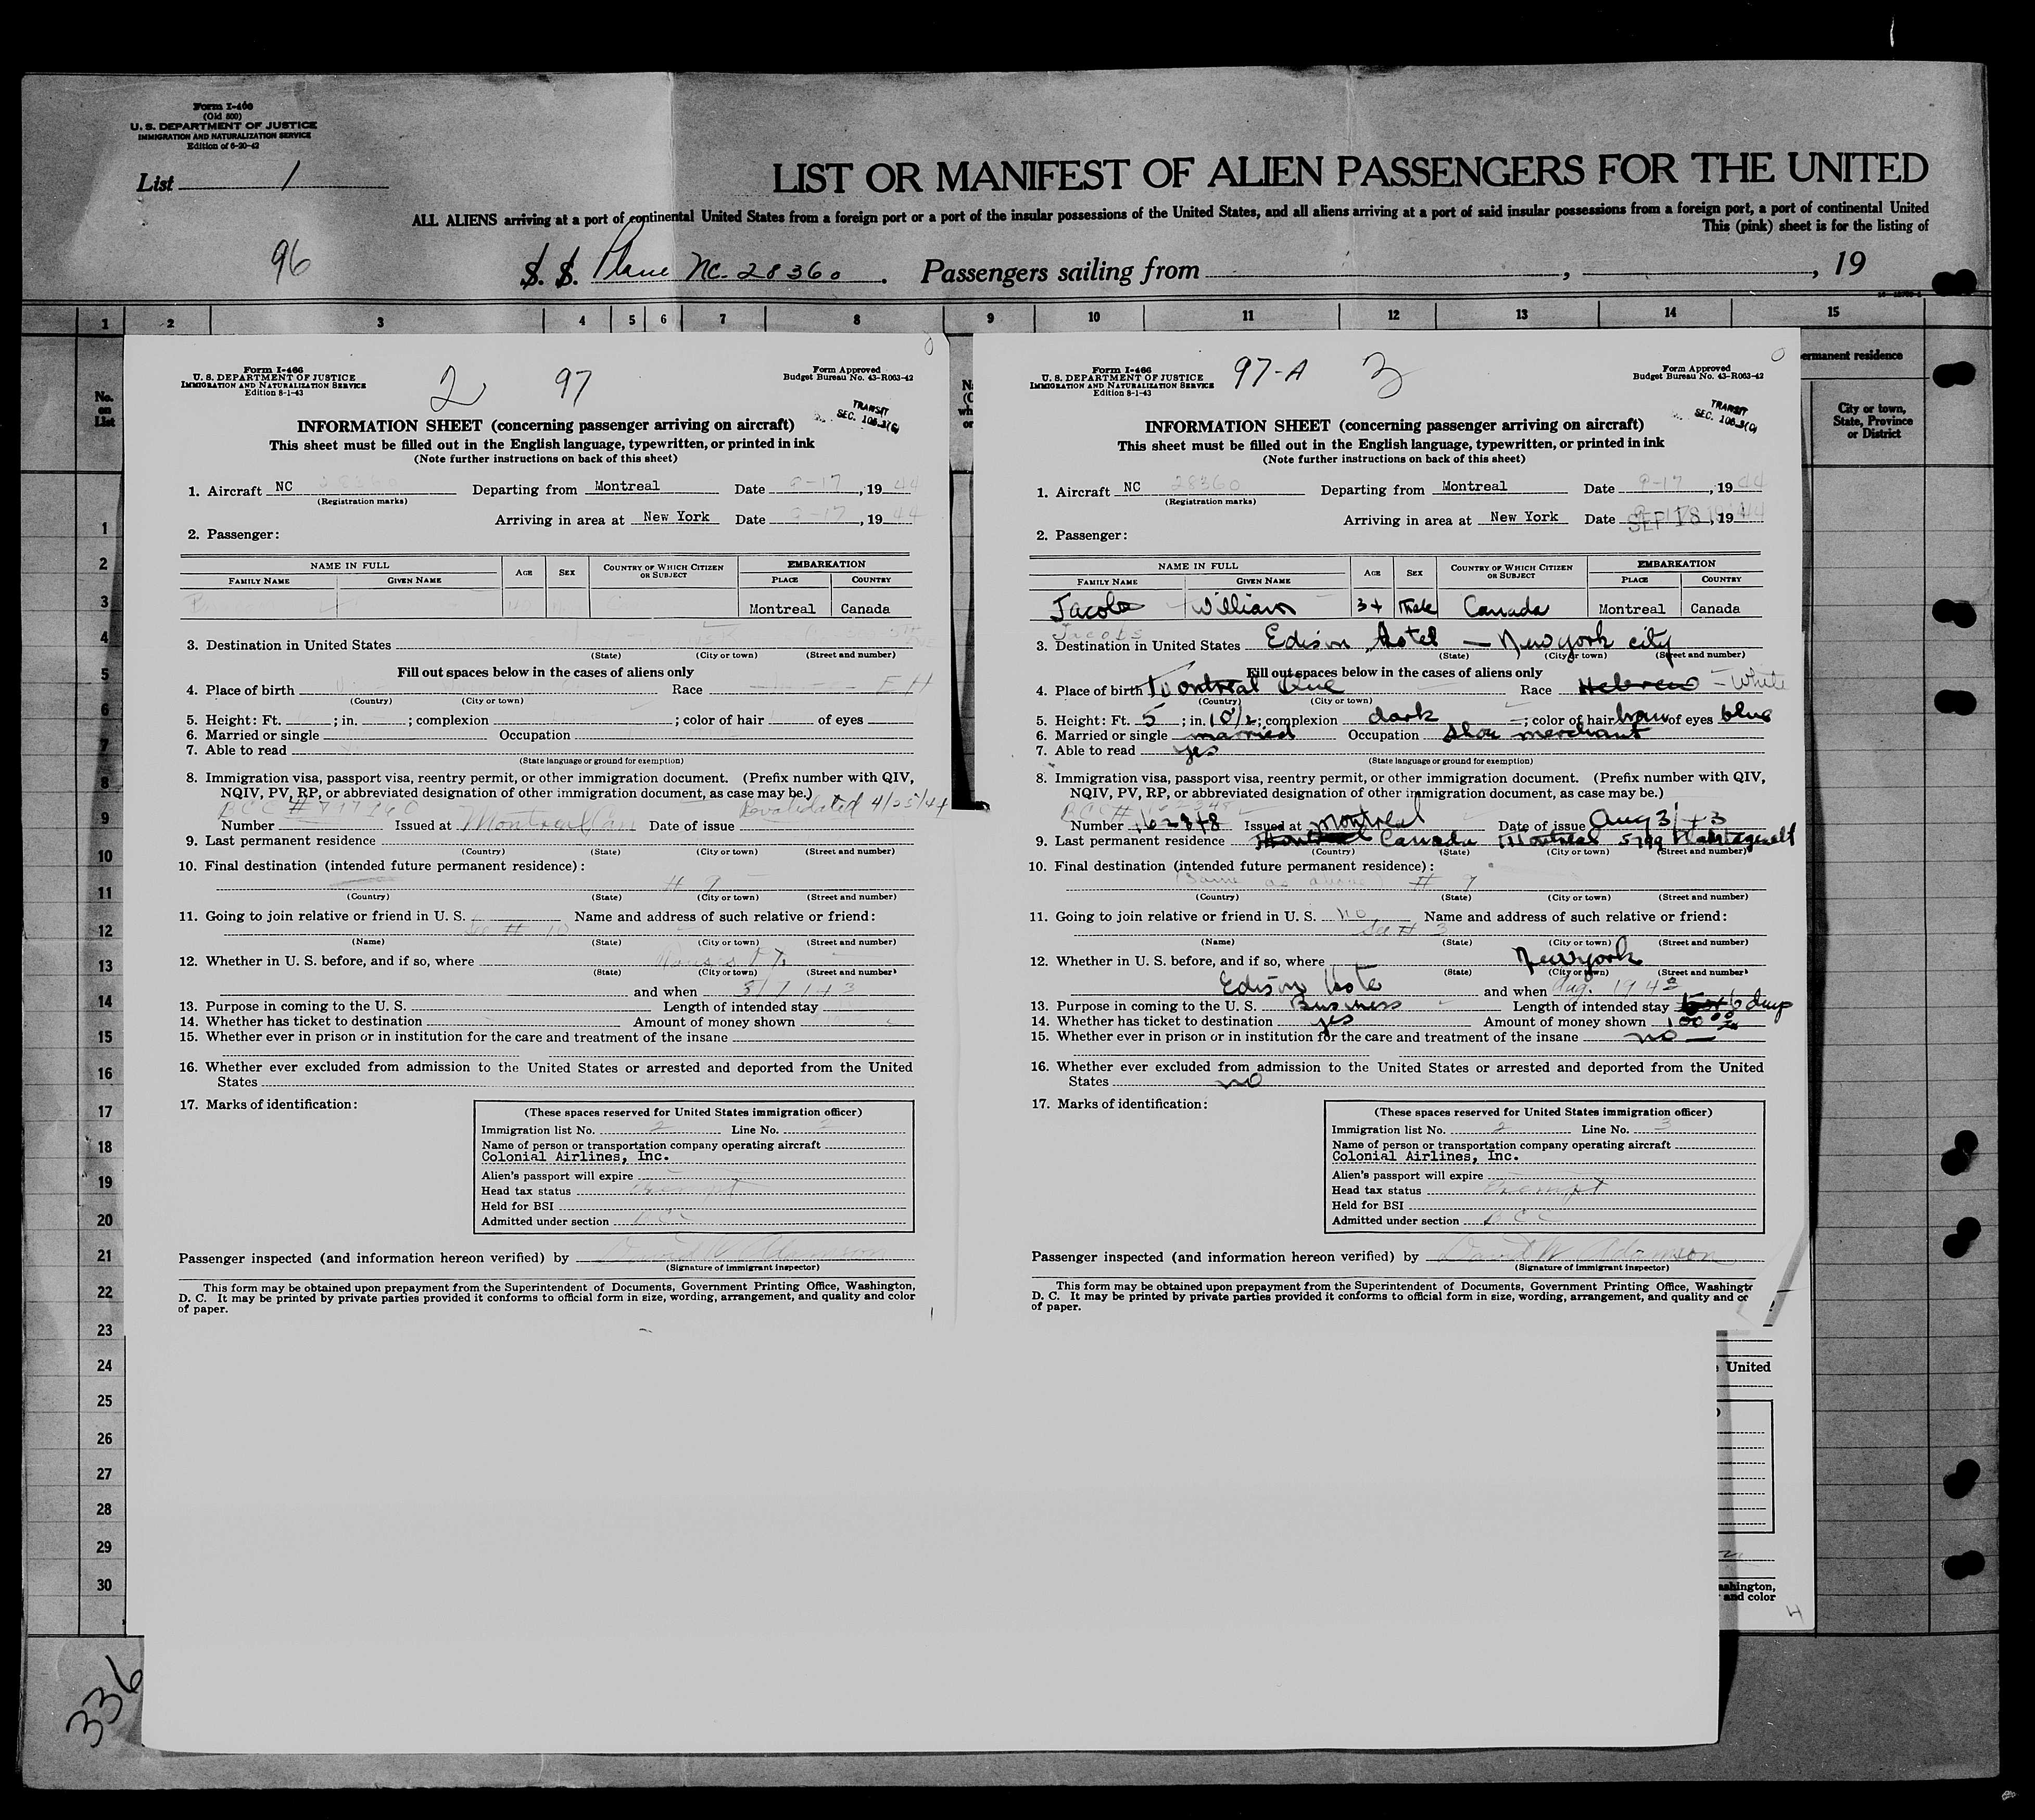 Form I-466
(Old 500)
U. S. DEPARTMENT OF JUSTICE
IMMIGRATION AND NATURALIZATION SERVICE
Edition of 6-20-42
List 1
LIST OR MANIFEST OF ALIEN PASSENGERS FOR THE UNITED
ALL ALIENS arriving at a port of continental United States from a foreign port or a port of the insular possessions of the United States, and all aliens arriving at a port of said insular possessions from a foreign port, a port of continental United
This (pink) sheet is for the listing of
96
S. S. Plane NC-28360. Passengers sailing from , , 19
1 2 3 4 5 6 7 8 9 10 11 12 13 14 15
No. on List
ermanent residence
City or town, State, Province or District
1
2
3
4
5
6
7
8
9
10
11
12
13
14
15
16
17
18
19
20
21
22
23
24
25
26
27
28
29
30
336
Form I-466
U. S. DEPARTMENT OF JUSTICE
IMMIGRATION AND NATURALIZATION SERVICE
Edition 8-1-43
2 97
Form Approved
Budget Bureau No. 43-R063-42
TRANSIT
INFORMATION SHEET (concerning passenger arriving on aircraft)
This sheet must be filled out in the English language, typewritten, or printed in ink
(Note further instructions on back of this sheet)
1. Aircraft NC 28360 Departing from Montreal Date 9-17, 1944
(Registration marks)
Arriving in area at New York Date 9-17, 1944
2. Passenger:
NAME IN FULL AGE SEX COUNTRY OF WHICH CITIZEN OR SUBJECT EMBARKATION
FAMILY NAME GIVEN NAME PLACE COUNTRY
Montreal Canada
3. Destination in United States
(State) (City or town) (Street and number)
Fill out spaces below in the cases of aliens only
4. Place of birth Race
(Country) (City or town)
5. Height: Ft. ; in. ; complexion ; color of hair of eyes
6. Married or single Occupation
7. Able to read
(State language or ground for exemption)
8. Immigration visa, passport visa, reentry permit, or other immigration document. (Prefix number with QIV,
NQIV, PV, RP, or abbreviated designation of other immigration document, as case may be.)
BCC # Revalidated 4/25/44
Number Issued at Montreal Can Date of issue
9. Last permanent residence
(Country) (State) (City or town) (Street and number)
10. Final destination (intended future permanent residence):
# 9
(Country) (State) (City or town) (Street and number)
11. Going to join relative or friend in U. S. Name and address of such relative or friend:
See # 10
(Name) (State) (City or town) (Street and number)
12. Whether in U. S. before, and if so, where
(State) (City or town) (Street and number)
and when
13. Purpose in coming to the U. S. Length of intended stay
14. Whether has ticket to destination Amount of money shown
15. Whether ever in prison or in institution for the care and treatment of the insane
16. Whether ever excluded from admission to the United States or arrested and deported from the United
States
17. Marks of identification:
(These spaces reserved for United States immigration officer)
Immigration list No. 2 Line No. 2
Name of person or transportation company operating aircraft
Colonial Airlines, Inc.
Alien's passport will expire
Head tax status Exempt
Held for BSI
Admitted under section BCC
Passenger inspected (and information hereon verified) by David W Adamson
(Signature of immigrant inspector)
This form may be obtained upon prepayment from the Superintendent of Documents, Government Printing Office, Washington,
D. C. It may be printed by private parties provided it conforms to official form in size, wording, arrangement, and quality and color
of paper.
Form I-466
U. S. DEPARTMENT OF JUSTICE
IMMIGRATION AND NATURALIZATION SERVICE
Edition 8-1-43
97-A 3
Form Approved
Budget Bureau No. 43-R063-42
TRANSIT
INFORMATION SHEET (concerning passenger arriving on aircraft)
This sheet must be filled out in the English language, typewritten, or printed in ink
(Note further instructions on back of this sheet)
1. Aircraft NC 28360 Departing from Montreal Date 9-17, 1944
(Registration marks)
Arriving in area at New York Date SEP 18, 19
2. Passenger:
NAME IN FULL AGE SEX COUNTRY OF WHICH CITIZEN OR SUBJECT EMBARKATION
FAMILY NAME GIVEN NAME PLACE COUNTRY
Jacobs William 34 Male Canada Montreal Canada
Jacobs
3. Destination in United States Edison Hotel — New York city
(State) (City or town) (Street and number)
Fill out spaces below in the cases of aliens only
4. Place of birth Montreal Que Race Hebrew - White
(Country) (City or town)
5. Height: Ft. 5; in. 10½; complexion dark; color of hair brown of eyes blue
6. Married or single married Occupation Shoe merchant
7. Able to read yes
(State language or ground for exemption)
8. Immigration visa, passport visa, reentry permit, or other immigration document. (Prefix number with QIV,
NQIV, PV, RP, or abbreviated designation of other immigration document, as case may be.)
BCC# 162348
Number 162348 Issued at Montreal Date of issue Aug 31/43
9. Last permanent residence Canada Montreal 5799
(Country) (State) (City or town) (Street and number)
10. Final destination (intended future permanent residence):
(Same as above) # 9
(Country) (State) (City or town) (Street and number)
11. Going to join relative or friend in U. S. No Name and address of such relative or friend:
See # 3
(Name) (State) (City or town) (Street and number)
12. Whether in U. S. before, and if so, where New York
(State) (City or town) (Street and number)
Edison Hote and when Aug. 1943
13. Purpose in coming to the U. S. Business Length of intended stay 6 days
14. Whether has ticket to destination yes Amount of money shown 100.00
15. Whether ever in prison or in institution for the care and treatment of the insane no —
16. Whether ever excluded from admission to the United States or arrested and deported from the United
States no
17. Marks of identification:
(These spaces reserved for United States immigration officer)
Immigration list No. 2 Line No. 3
Name of person or transportation company operating aircraft
Colonial Airlines, Inc.
Alien's passport will expire
Head tax status Exempt
Held for BSI
Admitted under section BCC
Passenger inspected (and information hereon verified) by David W Adamson
(Signature of immigrant inspector)
This form may be obtained upon prepayment from the Superintendent of Documents, Government Printing Office, Washingt
D. C. It may be printed by private parties provided it conforms to official form in size, wording, arrangement, and quality and co
of paper.
United
ashington,
and color
4